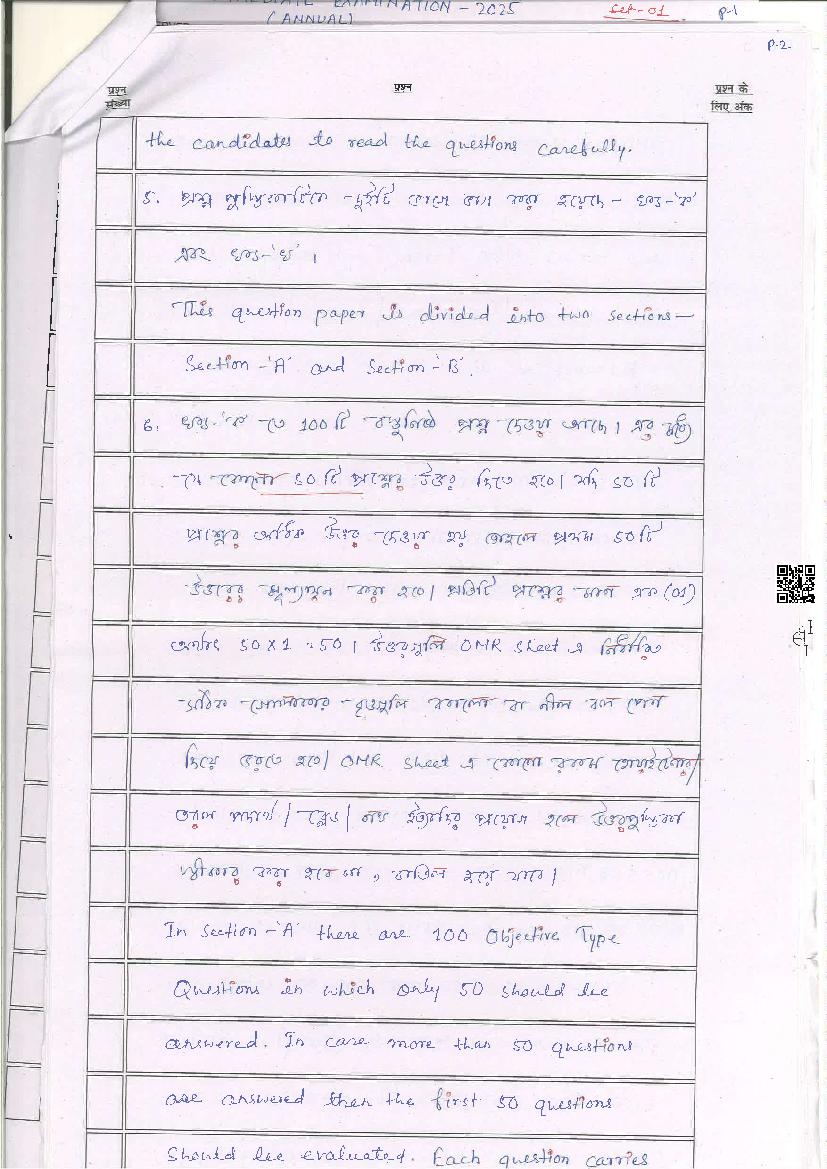 EXAMINATION - 2025
(ANNUAL)
Set-01
P-1
P-2
प्रश्न संख्या
प्रश्न
प्रश्न के लिए अंक
the candidates to read the questions carefully.
৫. প্রশ্ন পুস্তিকাটিকে দুইটি ভাগে ভাগ করা হয়েছে - খণ্ড-'ক'
এবং খণ্ড-'খ' ।
This question paper is divided into two sections—
Section-'A' and Section-'B'.
৬. খণ্ড-'ক' তে 100 টি বস্তুনিষ্ঠ প্রশ্ন দেওয়া আছে। এর মধ্যে
যে কোনো 50 টি প্রশ্নের উত্তর দিতে হবে। যদি 50 টি
প্রশ্নের অধিক উত্তর দেওয়া হয় তাহলে প্রথম 50 টি
উত্তরের মূল্যায়ন করা হবে। প্রতিটি প্রশ্নের মান এক (01)
অর্থাৎ 50 X 1 = 50 । উত্তরগুলি OMR Sheet এ নির্ধারিত
সঠিক গোলাকার বৃত্তগুলি কালো বা নীল বল পেন
দিয়ে ভরতে হবে। OMR Sheet এ কোনো রকম হোয়াইটেনার/
তরল পদার্থ / ব্লেড / নখ ইত্যাদির প্রয়োগ হলে উত্তরপুস্তিকা
স্বীকার করা হবে না, বাতিল হয়ে যাবে।
In Section-'A' there are 100 Objective Type
Questions in which only 50 should be
answered. In case more than 50 questions
are answered then the first 50 questions
should be evaluated. Each question carries